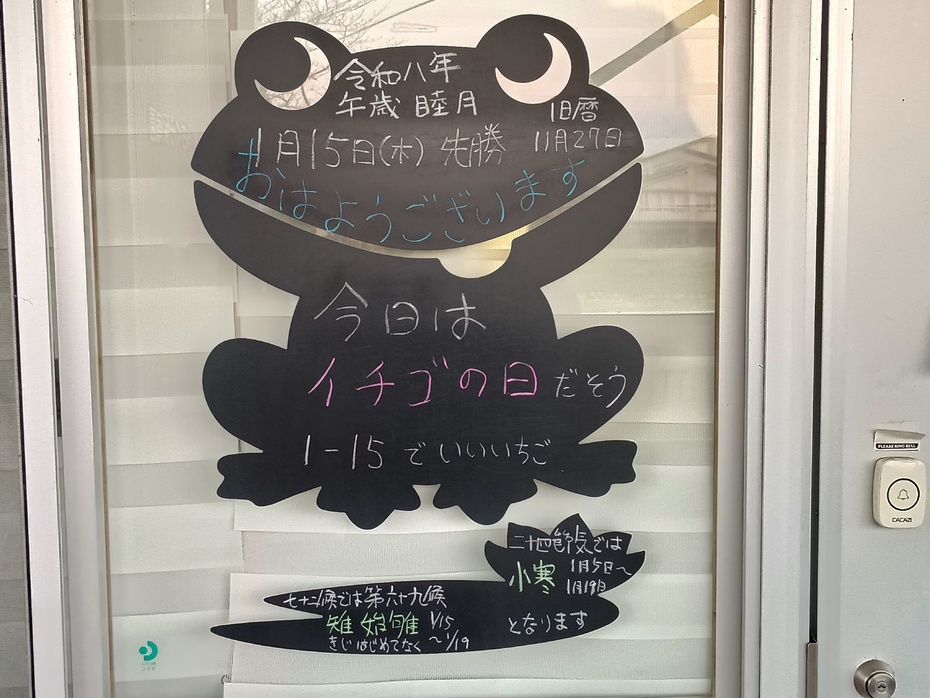 令和八年
午歳 睦月
旧暦
1月15日(木) 先勝 11月27日
おはようございます
今日は
イチゴの日だそう
1-15でいいいちご
二十四節気では
小寒 1月5日~
1月19日
七十二候では第六十九候
雉始雊 1/15
きじはじめてなく ~1/19
となります
PLEASE RING BELL
CACAZI